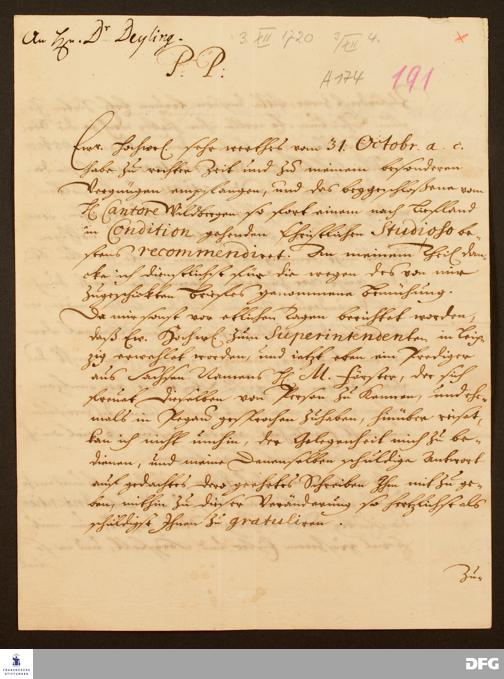 An Hn. Dr Deyling.
3. XII 1720 3/XII 4.
P. P.
A 174
191
Ew. Hochw. sehr werthes vom 31. Octobr. a. c.
habe zu rechter Zeit und zu meinem besonderen
Vergnügen empfangen, und das beygeschlossene vom
H. Cantore Wildbergen so fort einem nach Liefland
in Condition gehenden Christlichen Studioso be-
stens recommendiret. An meinem Theil dan-
cke ich dienstlichst für die wegen des von mir
zugeschickten Briefes genommene Bemühung.
Da mir sonst vor etlichen Tagen berichtet worden,
daß Ew. Hochw. zum Superintendenten in Leip-
zig erwehlet worden, und jetzt eben ein Prediger
aus Sachsen Namens H. M. Förster, der sich
freuet Dieselben von Person zu kennen, und ehe-
mals in Pegau gesprochen zu haben, hinüber reiset,
kan ich nicht umhin, der Gelegenheit mich zu be-
dienen, und meine Denenselben schuldige Antwort
auf gedachtes dero geehrtes Schreiben Ihm mit zu ge-
ben, mithin zu dieser Veränderung so hertzlichst als
schuldigst Ihnen zu gratuliren.
Zu-
FRANCKESCHE
STIFTUNGEN
DFG